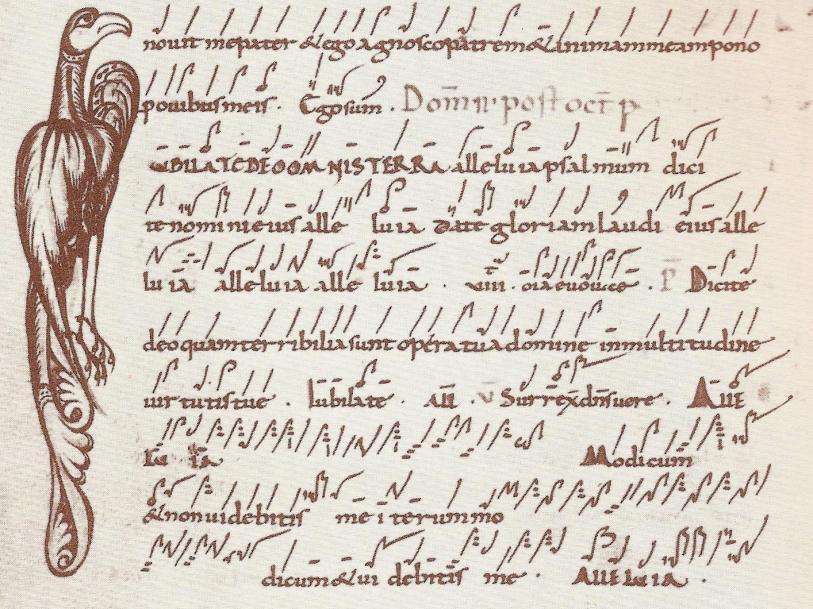 nouit me pater & ego agnosco pātrem & animam meam pono
p ouibus meis . Ego sum . Dom̄ II· post oct̄ p
IUBILATE DEO OMNIS TERRA alleluia psalmum dici
te nomini eius alle luia date gloriam laudi eius alle
luia alleluia alle luia . VIII . oia euouae . P̄ Dicite
deo quam terribilia sunt opera tua domine in multitudine
uirtutis tue . Iubilate . All V Surrex dn̄s uere . ALLE
LU IA Modicum
& non uidebitis me iterum mo
dicum & ui debitis me . ALLELUIA .